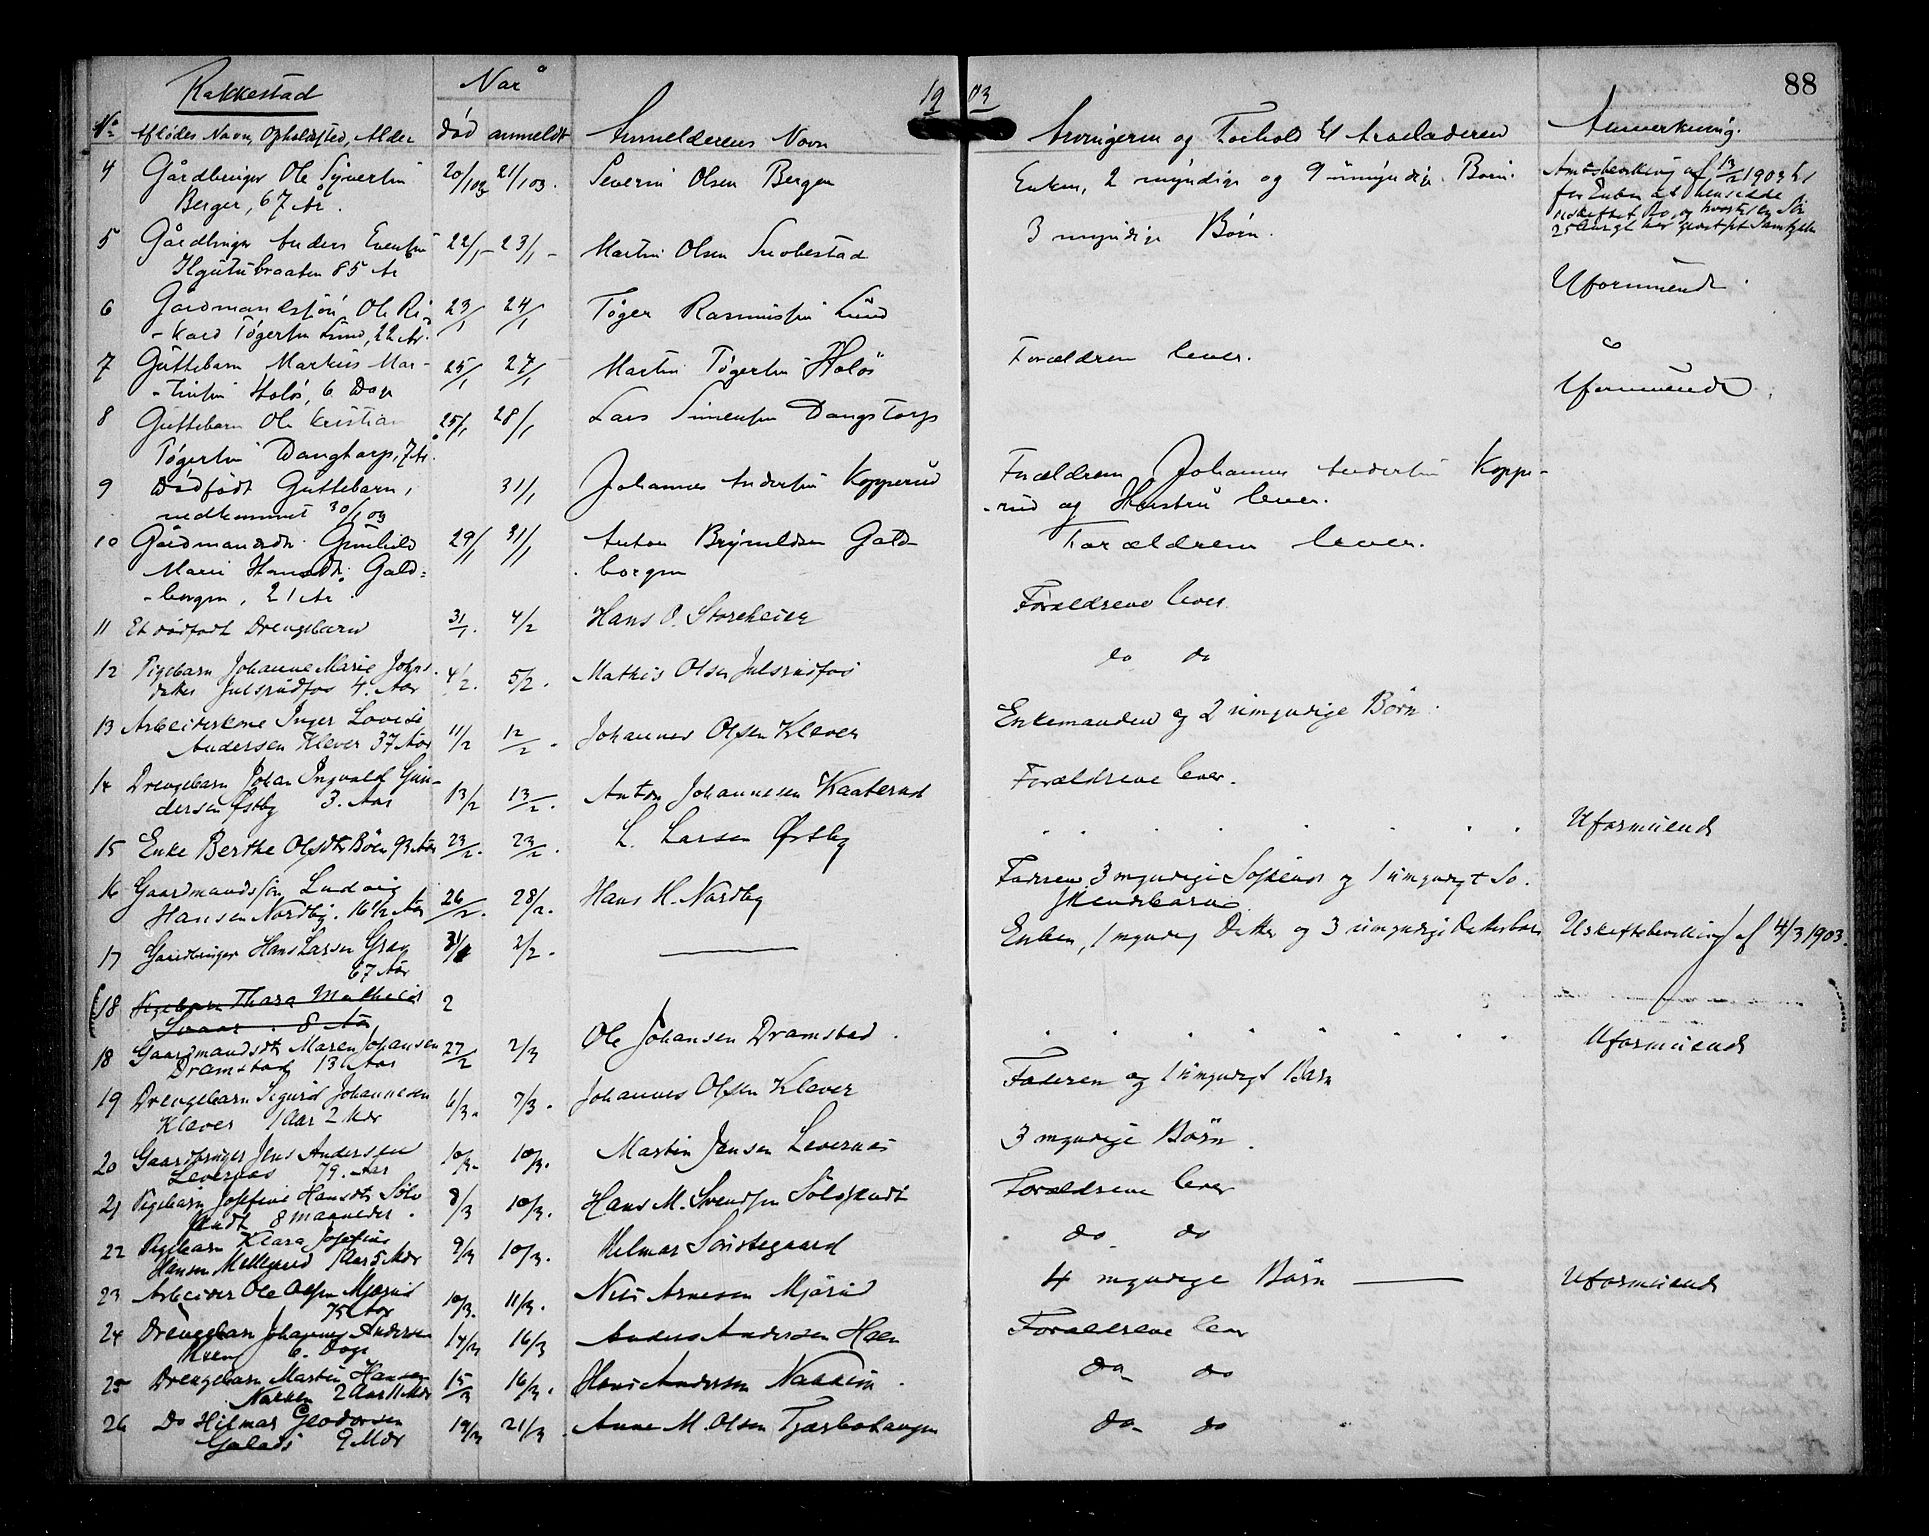 Rakkestad
Naar
19 03
88
No Afdødes Navn, Opholdssted, Alder død anmeldt Anmelderens Navn Arvingerne og Forhold til Arveladeren Anmerkning.
4 Gårdbruger Ole Syvertsen 20/1 03 21/1 03. Severin Olsen Bergen Enken, 2 myndige og 9 umyndige Børn. Amtsbevilling af 13/2 1903
Berger, 67 År.
for Enken at hensidde
i uskiftet Bo, og
5 Gårdbruger Anders Evensen 22/1 - 23/1 - Martin Olsen 3 myndige Børn.
85 År Uformuende.
6 Gårdmandssøn Ole Ri- 23/1 24/1 Tøger Rasmussen Lund
-kard Tøgersen Lund, 22 År.
7 Guttebarn Markus Mar- 25/1 27/1 Martin Tøgersen Holøs Forældrene lever.
-tinsen Holøs, 6 Dage Uformuende.
8 Guttebarn Ole Kristian 25/1 28/1 Lars Simensen Dangstorp
Tøgersen Dangtorp, 7 År.
9 Dødfødt Guttebarn, 31/1 Johannes Andersen Kopperud Forældrene Johannes Andersen Koppe-
nedkommet 30/1 03 -rud og Hustru lever.
10 Gårdmandsdtr. Gunhild 29/1 31/1 Anton Brynildsen Gald- Forældrene lever.
Marie Hansdtr. Gald- borgen
-borgen, 21 År.
11 Et dødfødt Drengebarn 31/1. 4/2 Hans O. Storeheier Forældrene lever.
12 Pigebarn Johanne Marie Johns- 4/2. 5/2. Mathis Olsen Julsrudfos do do
datter Julsrudfos 4. Aar
13 Arbeiderkone Inger Lovise 11/2 12/2. Johannes Olsen Kløver Enkemanden og 2 umyndige Børn.
Andersen Kløver 37 Aar
14 Drengebarn Johan Ingvald Gun- 13/2 13/2. Anton Johannesen Kaaterud Forældrene lever.
dersen Østby 3. Aar
15 Enke Berthe Olsdtr Böen 93 Aar 23/2. 23/2. L. Larsen Østby . . . . . . . . Uformuende
16 Gaardmandssøn Ludvig 26/2. 28/2. Hans H. Nordby Faderen 3 myndige Søskende og 1 umyndigt Sø-
Hansen Nordby. 16 1/2 Aar skendebarn
17 Gaardbruger Hans Larsen Grav 31/1 2/2. —— Enken, 1 myndig Datter og 3 umyndige Datterbørn Uskiftebevilling af 4/3 1903.
67 Aar
(18 Pigebarn Thora Mathea 2
8 Aar
18 Gaardmandsdtr Maren Johansen 27/2 2/3 Ole Johansen Dramstad. . . . . . . . . Uformuende
Dramstad 13 1/2 Aar
19 Drengebarn Sigurd Johannesen 6/3. 7/3. Johannes Olsen Kløver Faderen og 1 umyndigt Barn
Kløver 1 Aar 2 Mdr
20 Gaardbruger Jens Andersen 10/3. 10/3. Martin Jensen Levernæs 3 myndige Børn.
Levernæs 79. Aar
21 Pigebarn Josefine Hansdtr Sölv 8/3 10/3. Hans M. Svendsen Sölvskudt Forældrene lever
skudt 8 maaneder.
22 Pigebarn Klara Josefine 9/3 10/3. Hilmar Sørstegaard do do
Hansen Mellegaard 1 Aar 5 Mdr
23 Arbeider Ole Olsen Mjørud 10/3. 11/3. Nils Arnesen Mjörud 4 myndige Börn —— Uformuende
75 Aar
24 Drengebarn Johannes Andersen 14/3 16/3 Anders Andersen Hoen Forældrene lever
6. Dage
25 Drengebarn Martin Hansen 15/3 16/3. Hans Andersen Nakkim. do do
Nakken 2 Aar 11 Mdr
26 Do Hilmar Theodorsen 19/3 21/3. Anne M. Olsen Tjærbohaugen do do
9 Mdr